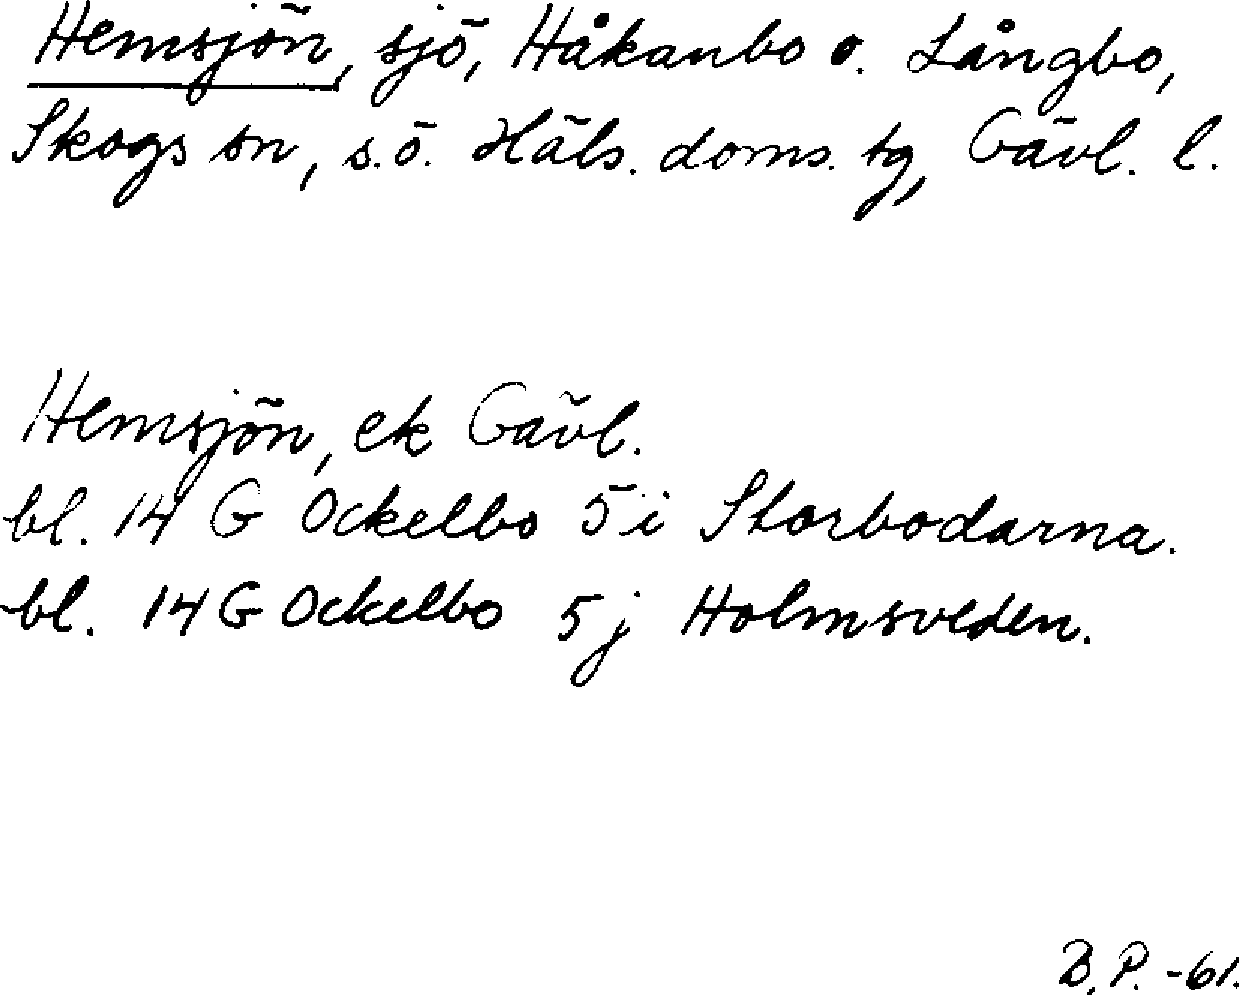 Hemsjön, sjö, Håkanbo o. Långbo,
Skogs sn, s.ö. Häls. doms. tg, Gävl. l.
Hemsjön, ek Gävl.
bl. 14 G Ockelbo 5 i Storbodarna.
bl. 14 G Ockelbo 5 j Holmsveden.
B. P. -61.